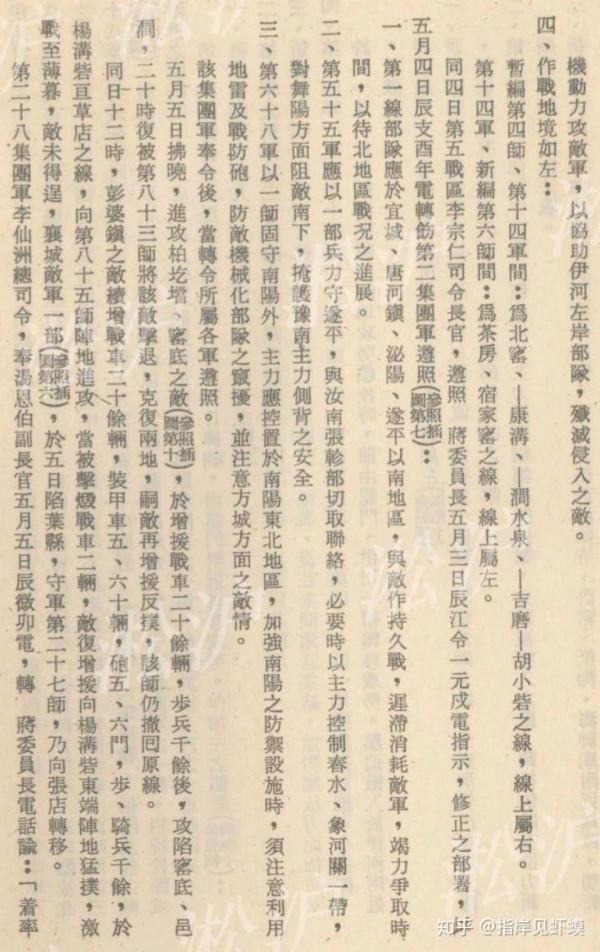 機動力攻敵軍，以協助伊河左岸部隊，殲滅侵入之敵。
四、作戰地境如左：
暫編第四師、第十四軍間：爲北窰、—康溝、—澗水泉、—吉磨—胡小砦之線，線上屬右。
第十四軍、新編第六師間：爲茶房、宿家窰之線，線上屬左。
同四日第五戰區李宗仁司令長官，遵照　蔣委員長五月三日辰江令一元戍電指示，修正之部署，以
五月四日辰支酉年電轉飭第二集團軍遵照（參照插圖第七）：
一、第一線部隊應於宜城、唐河鎮、泌陽、遂平以南地區，與敵作持久戰，遲滯消耗敵軍，竭力爭取時
間，以待北地區戰況之進展。
二、第五十五軍應以一部兵力守遂平，與汝南張軫部切取聯絡，必要時以主力控制春水、象河關一帶，
對舞陽方面阻敵南下，掩護豫南主力側背之安全。
三、第六十八軍以一師固守南陽外，主力應控置於南陽東北地區，加強南陽之防禦設施時，須注意利用
地雷及戰防砲，防敵機械化部隊之竄擾，並注意方城方面之敵情。
該集團軍奉令後，當轉令所屬各軍遵照。
五月五日拂曉，進攻柏圪壋、窰底之敵（參照插圖第十），於增援戰車二十餘輛，步兵千餘後，攻陷窰底、邑
澗，二十時復被第八十三師將該敵擊退，克復兩地，嗣敵再增援反撲，該師仍撤回原線。
同日十二時，彭婆鎮之敵續增戰車二十餘輛，裝甲車五、六十輛，砲五、六門，步、騎兵千餘，於
楊溝砦亘草店之線，向第八十五師陣地進攻，當被擊燬戰車二輛，敵復增援向楊溝砦東端陣地猛撲，激
戰至薄暮，敵未得逞，襄城敵軍一部（參照插圖第六），於五日陷葉縣，守軍第二十七師，乃向張店轉移。
第二十八集團軍李仙洲總司令，奉湯恩伯副長官五月五日辰微卯電，轉　蔣委員長電話諭：「着率
知乎 @指岸见虾蟆